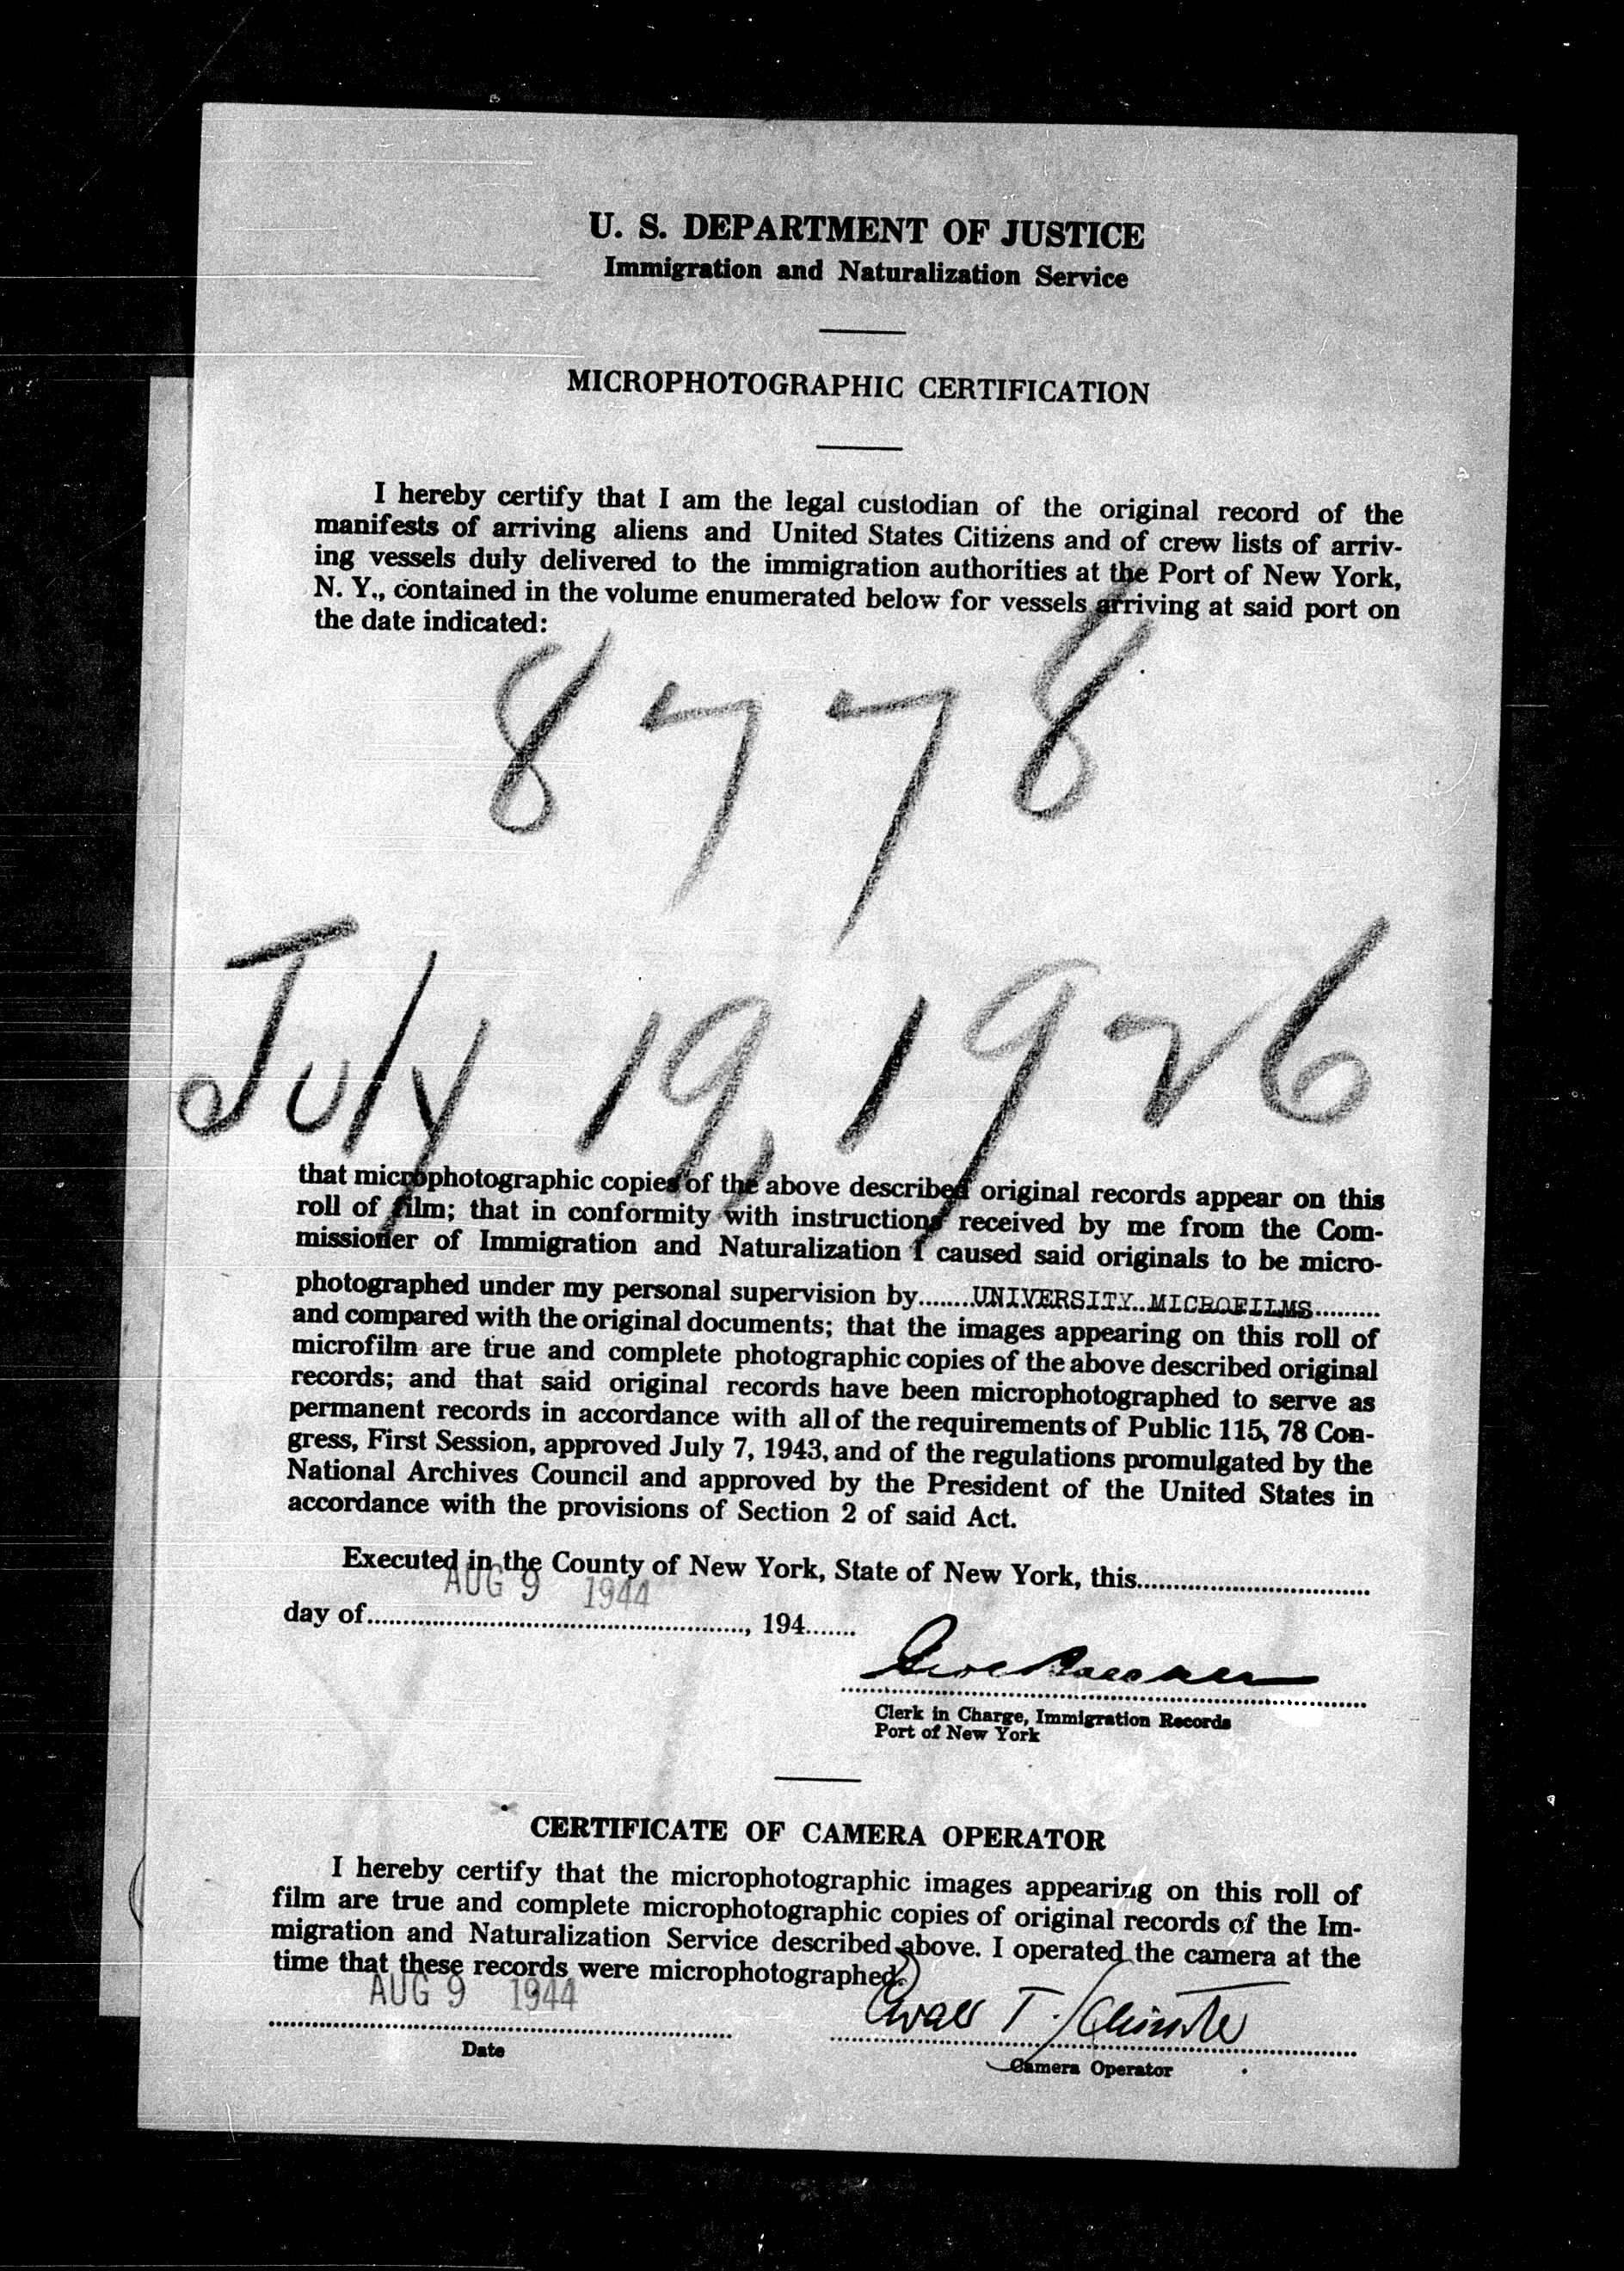 U. S. DEPARTMENT OF JUSTICE
Immigration and Naturalization Service
MICROPHOTOGRAPHIC CERTIFICATION
I hereby certify that I am the legal custodian of the original record of the
manifests of arriving aliens and United States Citizens and of crew lists of arriv-
ing vessels duly delivered to the immigration authorities at the Port of New York,
N. Y., contained in the volume enumerated below for vessels arriving at said port on
the date indicated:
8778
July 19, 1926
that microphotographic copies of the above described original records appear on this
roll of film; that in conformity with instructions received by me from the Com-
missioner of Immigration and Naturalization I caused said originals to be micro-
photographed under my personal supervision by.......UNIVERSITY MICROFILMS.........
and compared with the original documents; that the images appearing on this roll of
microfilm are true and complete photographic copies of the above described original
records; and that said original records have been microphotographed to serve as
permanent records in accordance with all of the requirements of Public 115, 78 Con-
gress, First Session, approved July 7, 1943, and of the regulations promulgated by the
National Archives Council and approved by the President of the United States in
accordance with the provisions of Section 2 of said Act.
Executed in the County of New York, State of New York, this................................
AUG 9 1944
day of...................................................., 194.......
Clerk in Charge, Immigration Records
Port of New York
CERTIFICATE OF CAMERA OPERATOR
I hereby certify that the microphotographic images appearing on this roll of
film are true and complete microphotographic copies of original records of the Im-
migration and Naturalization Service described above. I operated the camera at the
time that these records were microphotographed.
AUG 9 1944
T.
Date
Camera Operator